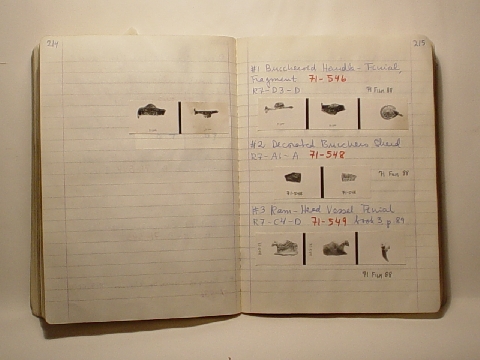 214
215
#1 Buccheroid Handle - Finial,
Fragment 71-546
R7-D3-D
#2 Decorated Bucchero Sherd
R7-A1-A 71-548
71-548
#3 Ram-Head Vessel Finial
R7-C4-D 71-549 book 3 p 89